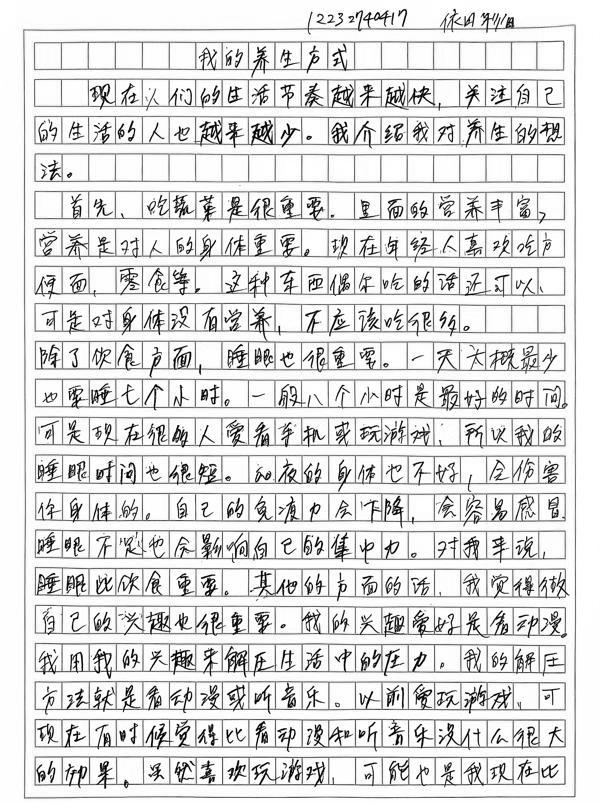 12232740417
我的养生方式
现在人们的生活节奏越来越快，关注自己
的生活的人也越来越少。我介绍我对养生的想
法。
首先、吃蔬菜是很重要．里面的营养丰富，
营养是对人的身体重要。现在年轻人喜欢吃方
便面，零食等。这种东西偶尔吃的话还可以、
可是对身体没有营养，不应该吃很多。
除了饮食方面，睡眠也很重要。一天大概最少
也要睡七个小时。一般八个小时是最好的时间。
可是现在很多人爱看手机或玩游戏，所以我的
睡眠时间也很短。熬夜的身体也不好，会伤害
你身体的。自己的免疫力会下降，会容易感冒
睡眠不足也会影响自己的集中力。对我来说，
睡眠比饮食重要。其他的方面的话，我觉得做
自己的兴趣也很重要。我的兴趣爱好是看动漫。
我用我的兴趣来解压生活中的压力。我的解压
方法就是看动漫或听音乐。以前爱玩游戏，可
现在有时候觉得比看动漫和听音乐没什么很大
的効果。虽然喜欢玩游戏，可能也是我现在比